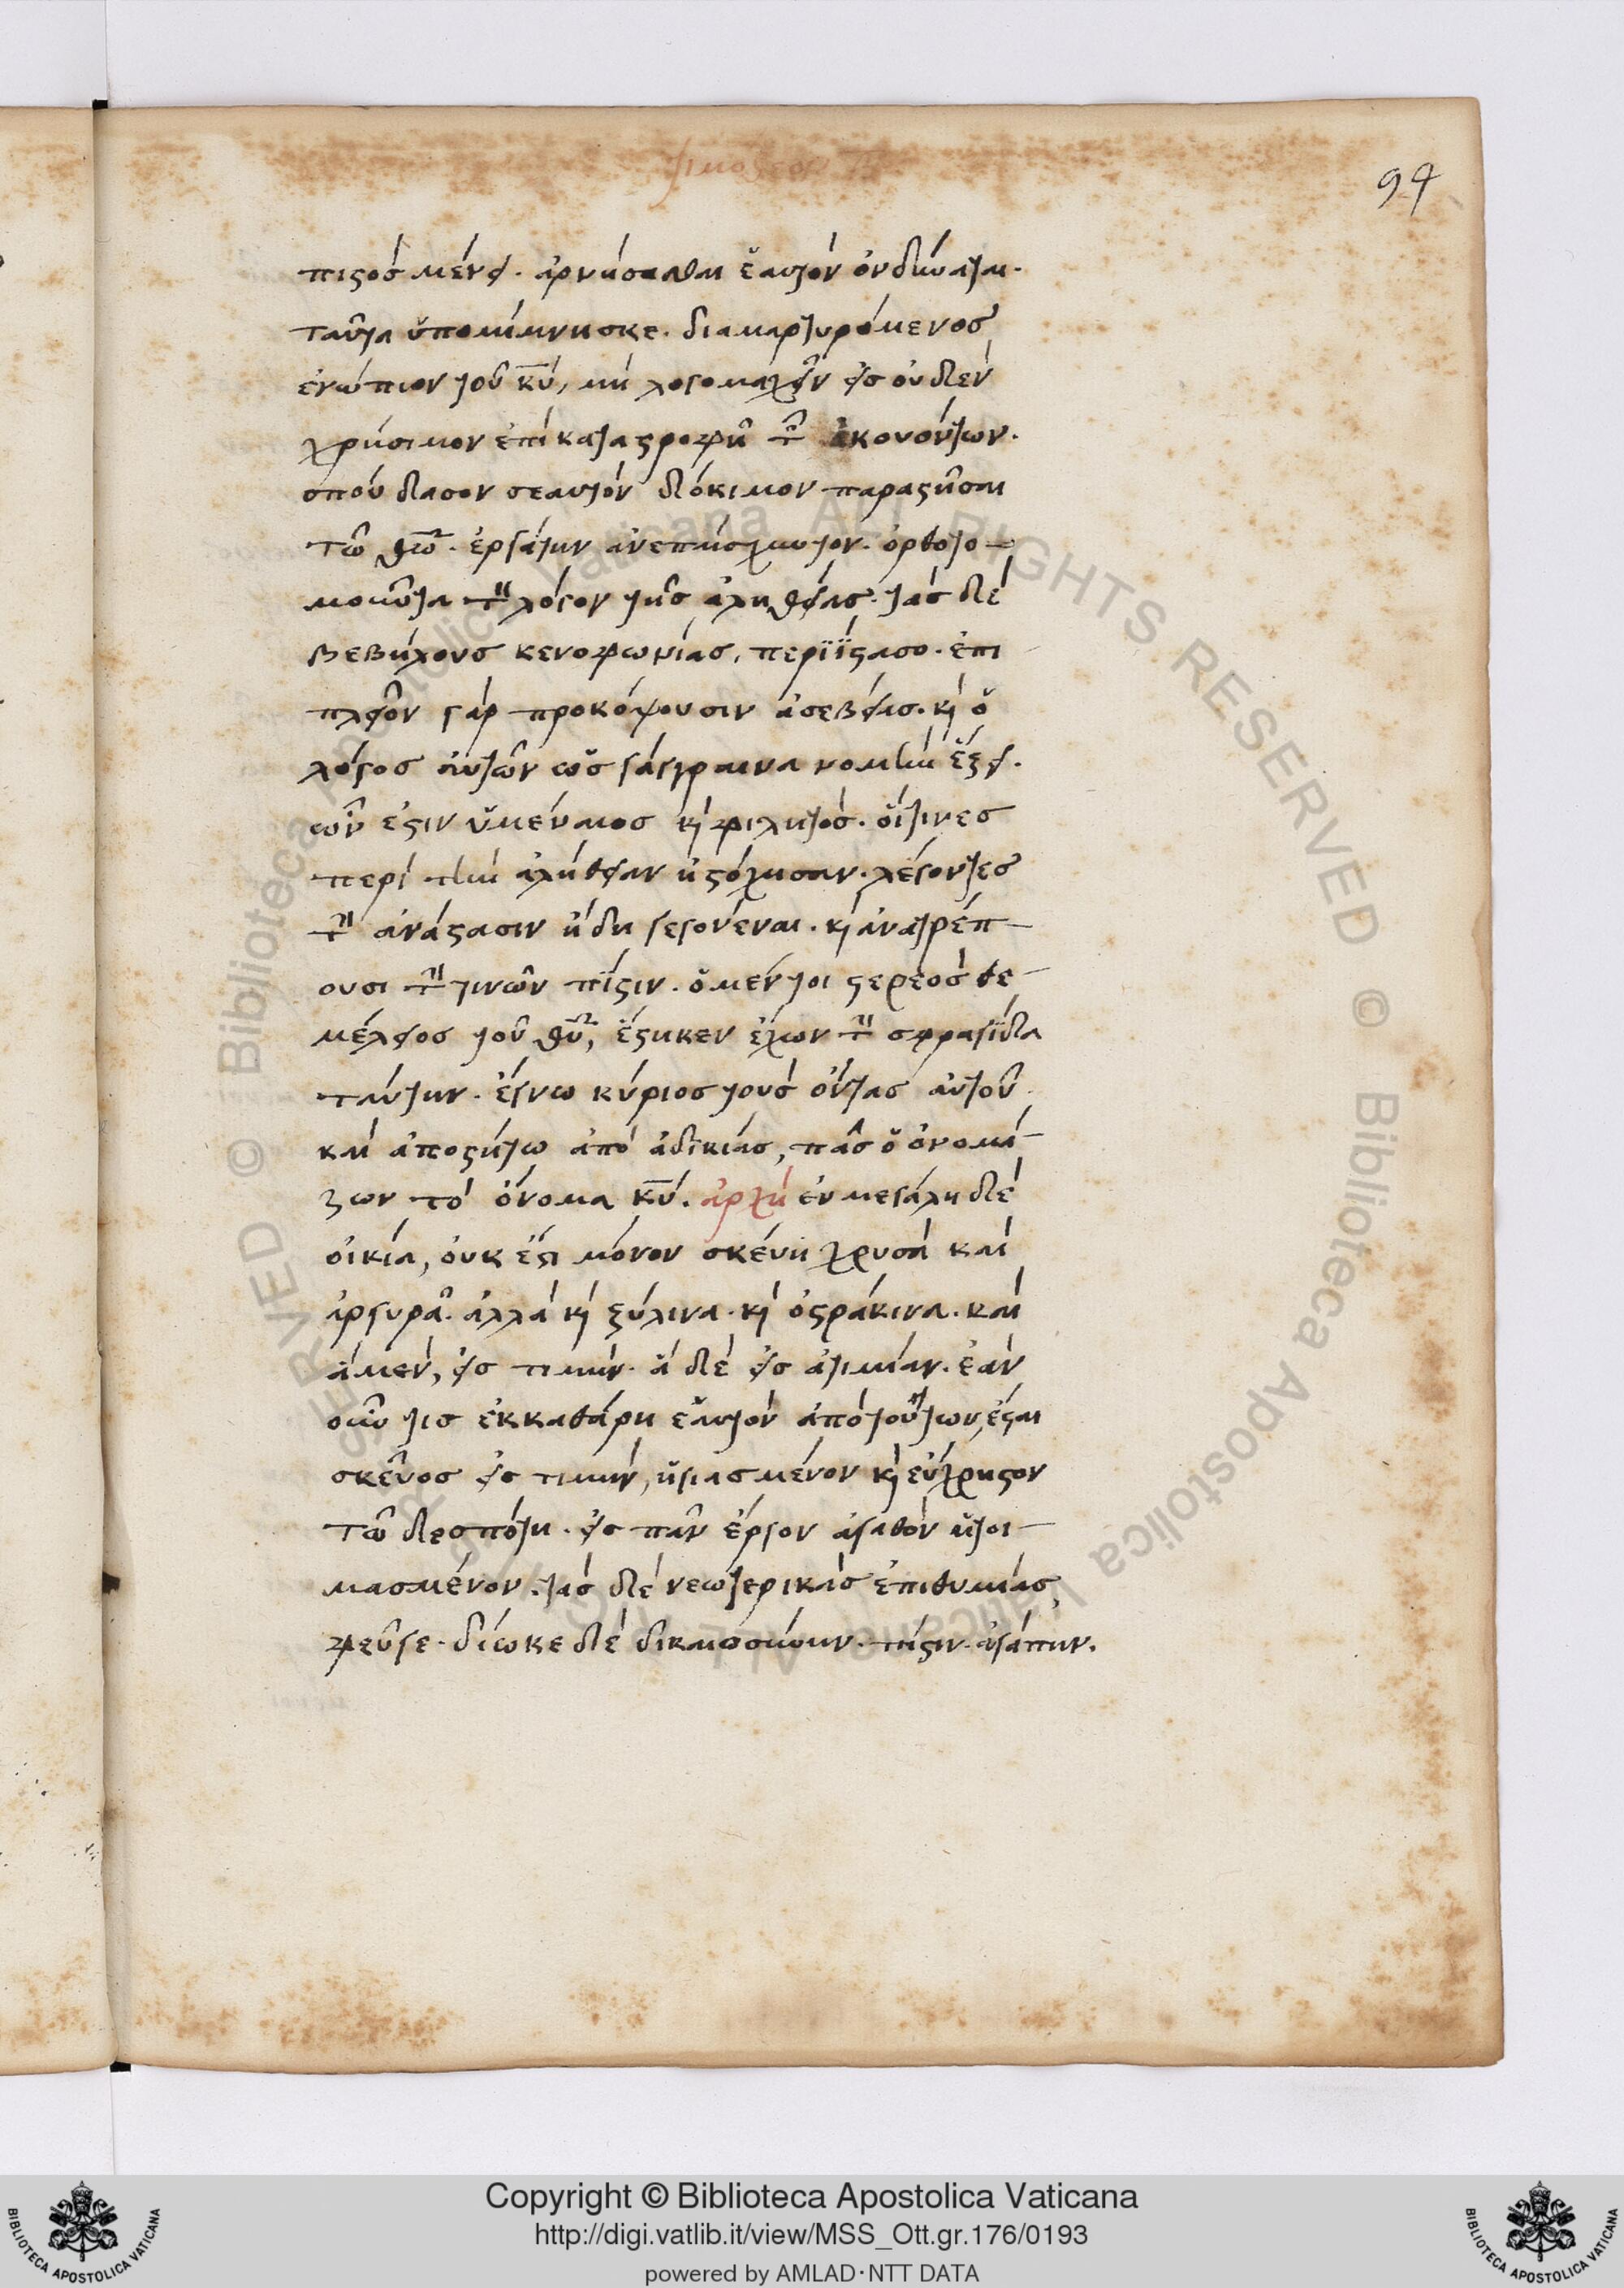 τιμοθεον β
94
πιστὸς μένει. ἀρνήσασθαι ἑαυτὸν οὐ δύναται.
ταῦτα ὑπομίμνησκε. διαμαρτυρόμενος
ἐνώπιον τοῦ κ̅υ̅, μὴ λογομαχεῖν εἰς οὐδὲν
χρήσιμον ἐπὶ καταστροφῆ τῶν ἀκουόντων.
σπούδασον σεαυτὸν δόκιμον παραστῆσαι
τῶ θ̅ω̅. ἐργάτην ἀνεπαίσχυντον. ὀρθοτο-
μοῦντα τὸν λόγον τῆς ἀληθείας. τὰς δὲ
βεβήλους κενοφωνίας, περιΐστασο. ἐπι
πλεῖον γὰρ προκόψουσιν ἀσεβείας. κ̀ ὁ
λόγος αὐτῶν ὡς γάγγραινα νομὴν ἕξει.
ὧν ἐστιν ὑμέναιος κ̀ φιλητός. οἵτινες
περὶ τὴν ἀλήθειαν ἠστόχησαν. λέγοντες
τὴν ἀνάστασιν ἤδη γεγονέναι. κ̀ ἀνατρέπ-
ουσι τὴν τινῶν πίστιν. ὁ μέντοι στερεὸς θε-
μέλειος τοῦ θ̅υ̅, ἕστηκεν ἔχων τὴν σφραγίδα
ταύτην. ἔγνω κύριος τοὺς ὄντας αὐτοῦ.
καὶ ἀποστήτω ἀπὸ ἀδικίας, πᾶς ὁ ὀνομά-
ζων τὸ ὄνομα κ̅υ̅. ἀρχὴ ἐν μεγάλη δὲ
οἰκία, οὐκ ἔστι μόνον σκεύη χρυσᾶ καὶ
ἀργυρᾶ. ἀλλὰ κ̀ ξύλινα. κ̀ ὀστράκινα. καὶ
ἃ μὲν, εἰς τιμήν. ἃ δὲ εἰς ἀτιμίαν. ἐὰν
οὖν τις ἐκκαθάρη ἑαυτὸν ἀπὸ τούτων, ἔσται
σκεῦος εἰς τιμήν, ἡγιασμένον κ̀ εὔχρηστον
τῶ δεσπότη. εἰς πᾶν ἔργον ἀγαθὸν ἡτοι-
μασμένον. τὰς δὲ νεωτερικὰς ἐπιθυμίας,
φεῦγε. δίωκε δὲ δικαιοσύνην. πίστιν. ἀγάπην.
Copyright © Biblioteca Apostolica Vaticana
http://digi.vatlib.it/view/MSS_Ott.gr.176/0193
powered by AMLAD·NTT DATA